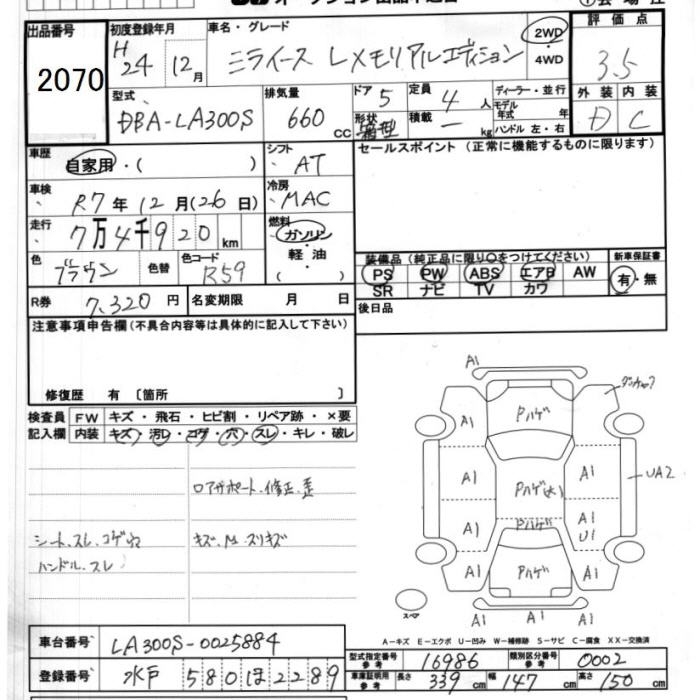 出品番号 初度登録年月 車名・グレード 2WD 評価点
2070 H24 12月 ミライース Lメモリアルエディション ・4WD 3.5
型式 排気量 ドア 5 定員 4人 ディーラー・並行 外装 内装
DBA-LA300S 660cc 形状 箱型 積載 ー kg モデル年式 年 D C
ハンドル 左・右
車歴 自家用・( ) シフト AT セールスポイント (正常に機能するものに限ります)
車検 R7年12月(26日) 冷房 MAC
走行 7万4千920km 燃料 ガソリン
軽・油
( )
装備品 (純正品に限り○をつけてください) 新車保証書
色 ブラウン 色替 色コード R59 PS PW ABS エアB AW 有・無
SR ナビ TV カワ
R券 7,320円 名変期限 月 日 後日品
注意事項申告欄(不具合内容等は具体的に記入して下さい)
修復歴 有〔箇所 〕
検査員 FW キズ・飛石・ヒビ割・リペア跡・×要
記入欄 内装 キズ・汚レ・コゲ・穴・スレ・キレ・破レ
ロアサポート、修正、歪
シート、スレ、コゲ穴 キズ、M、スリキズ
ハンドル、スレ
A1
A1 Pハゲ
A1 Pハゲ(大) A1 UA2
Pハゲ A1
A1 U1
A1 Pハゲ A1
スペア A1 A1 A1
A-キズ E-エクボ U-凹み W-補修跡 S-サビ C-腐食 XX-交換済
車台番号 LA300S-0025884
型式指定番号参考 16986 類別区分番号参考 0002
登録番号 水戸 580 ほ 2289
車庫証明用参考 長さ 339cm 幅 147cm 高さ 150cm